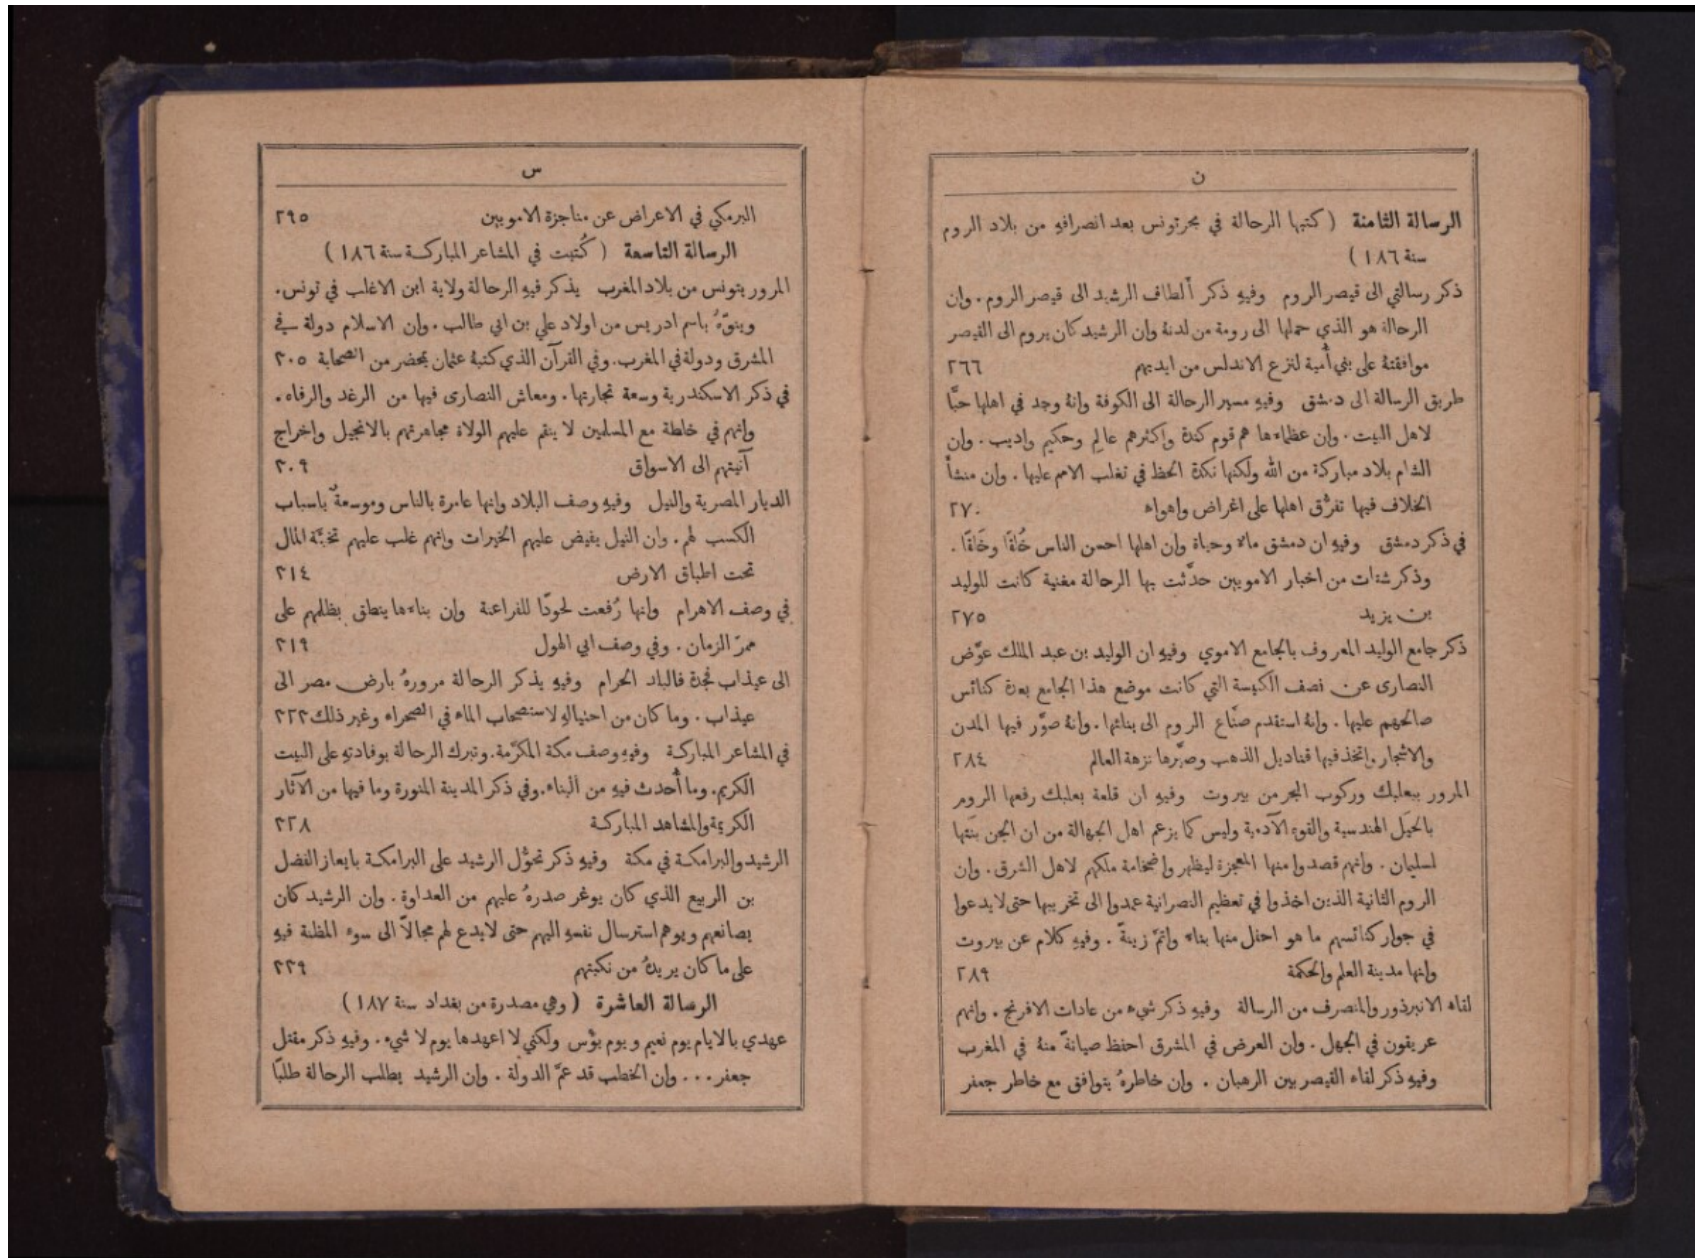 ن
الرسالة الثامنة ( كتبها الرحالة في بحر تونس بعد انصرافهِ من بلاد الروم
سنة ١٨٦ )
ذكر رسالتي الى قيصر الروم وفيهِ ذكر ألطاف الرشيد الى قيصر الروم . وان
الرحالة هو الذي حملها الى رومة من لدنهُ وان الرشيد كان يروم الى القيصر
موافقتهُ على بني أمية لنزع الاندلس من ايديهم ٢٦٦
طريق الرسالة الى دمشق وفيهِ مسير الرحالة الى الكوفة وانهُ وجد في اهلها حبًّا
لاهل البيت . وان عظماءها هم قوم كندة واكثرهم عالم وحكيم واديب . وان
الشام بلاد مباركة من الله ولكنها نكدة الحظ في تغلب الامم عليها . وان منشأ
الخلاف فيها تفرُّق اهلها على اغراض واهواء ٢٧٠
في ذكر دمشق وفيهِ ان دمشق ماء وحياة وان اهلها احسن الناس خُلقًا وخَلقًا .
وذكر شذات من اخبار الامويين حدَّثت بها الرحالة مغنية كانت للوليد
بن يزيد ٢٧٥
ذكر جامع الوليد المعروف بالجامع الاموي وفيهِ ان الوليد بن عبد الملك عوَّض
النصارى عن نصف الكنيسة التي كانت موضع هذا الجامع بعدة كنائس
صالحهم عليها . وانهُ استقدم صنّاع الروم الى بنائها . وانهُ صوَّر فيها المدن
والاشجار واتخذ فيها قناديل الذهب وصيَّرها نزهة العالم ٢٨٤
المرور ببعلبك وركوب البحر من بيروت وفيهِ ان قلعة بعلبك رفعها الروم
بالحيَل الهندسية والقوى الآدمية وليس كما يزعم اهل الجهالة من ان الجن بنَتها
لسليمان . وانهم قصدوا منها المعجزة ليظهروا ضخامة ملكهم لاهل الشرق . وان
الروم الثانية الذين اخذوا في تعظيم النصرانية عمدوا الى تخريبها حتى لا يدعوا
في جوار كنائسهم ما هو احفل منها بناء واتمّ زينةً . وفيهِ كلام عن بيروت
وانها مدينة العلم والحكمة ٢٨٩
لقاء الانبرذور والمنصرف من الرسالة وفيهِ ذكر شيء من عادات الافرنج . وانهم
عريقون في الجهل . وان العرض في المشرق احفظ صيانةً منهُ في المغرب
وفيهِ ذكر لقاء القيصر بين الرهبان . وان خاطرهُ يتوافق مع خاطر جعفر
س
البرمكي في الاعراض عن مناجزة الامويين ٢٩٥
الرسالة التاسعة ( كُتبت في المشاعر المباركة سنة ١٨٦ )
المرور بتونس من بلاد المغرب يذكر فيهِ الرحالة ولاية ابن الاغلب في تونس .
وينوّهُ باسم ادريس من اولاد علي بن ابي طالب . وان الاسلام دولة في
المشرق ودولة في المغرب . وفي القرآن الذي كتبهُ عثمان بمحضر من الصحابة ٣٠٥
في ذكر الاسكندرية وسعة تجارتها . ومعاش النصارى فيها من الرغد والرفاه .
وانهم في خلطة مع المسلمين لا ينقم عليهم الولاة مجاهرتهم بالانجيل واخراج
آنيتهم الى الاسواق ٣٠٩
الديار المصرية والنيل وفيهِ وصف البلاد وانها عامرة بالناس وموسعةٌ باسباب
الكسب لهم . وان النيل يفيض عليهم الخيرات وانهم غلب عليهم تخبئة المال
تحت اطباق الارض ٣١٤
في وصف الاهرام وانها رُفعت لحودًا للفراعنة وان بناءها ينطق بظلمهم على
ممرّ الزمان . وفي وصف ابي الهول ٣١٩
الى عيذاب فجدة فالبلد الحرام وفيهِ يذكر الرحالة مرورهُ بارض مصر الى
عيذاب . وما كان من احتيالهِ لاستصحاب الماء في الصحراء وغير ذلك ٣٢٣
في المشاعر المباركة وفيهِ وصف مكة المكرّمة . وتبرك الرحالة بوفادتهِ على البيت
الكريم . وما أُحدث فيهِ من البناء . وفي ذكر المدينة المنورة وما فيها من الآثار
الكريمة والمشاهد المباركة ٣٢٨
الرشيد والبرامكة في مكة وفيهِ ذكر تحوُّل الرشيد على البرامكة بايعاز الفضل
بن الربيع الذي كان يوغر صدرهُ عليهم من العداوة . وان الرشيد كان
يصانعهم ويوهم استرسال نفسهِ اليهم حتى لا يدع لهم مجالاً الى سوء المظنة فيهِ
على ما كان يريدهُ من نكبتهم ٣٣٩
الرسالة العاشرة ( وهي مصدرة من بغداد سنة ١٨٧ )
عهدي بالايام يوم نعيم ويوم بؤس ولكني لا اعهدها يوم لا شيء . وفيهِ ذكر مقتل
جعفر ... وان الخطب قد عمّ الدولة . وان الرشيد يطلب الرحالة طلبًا